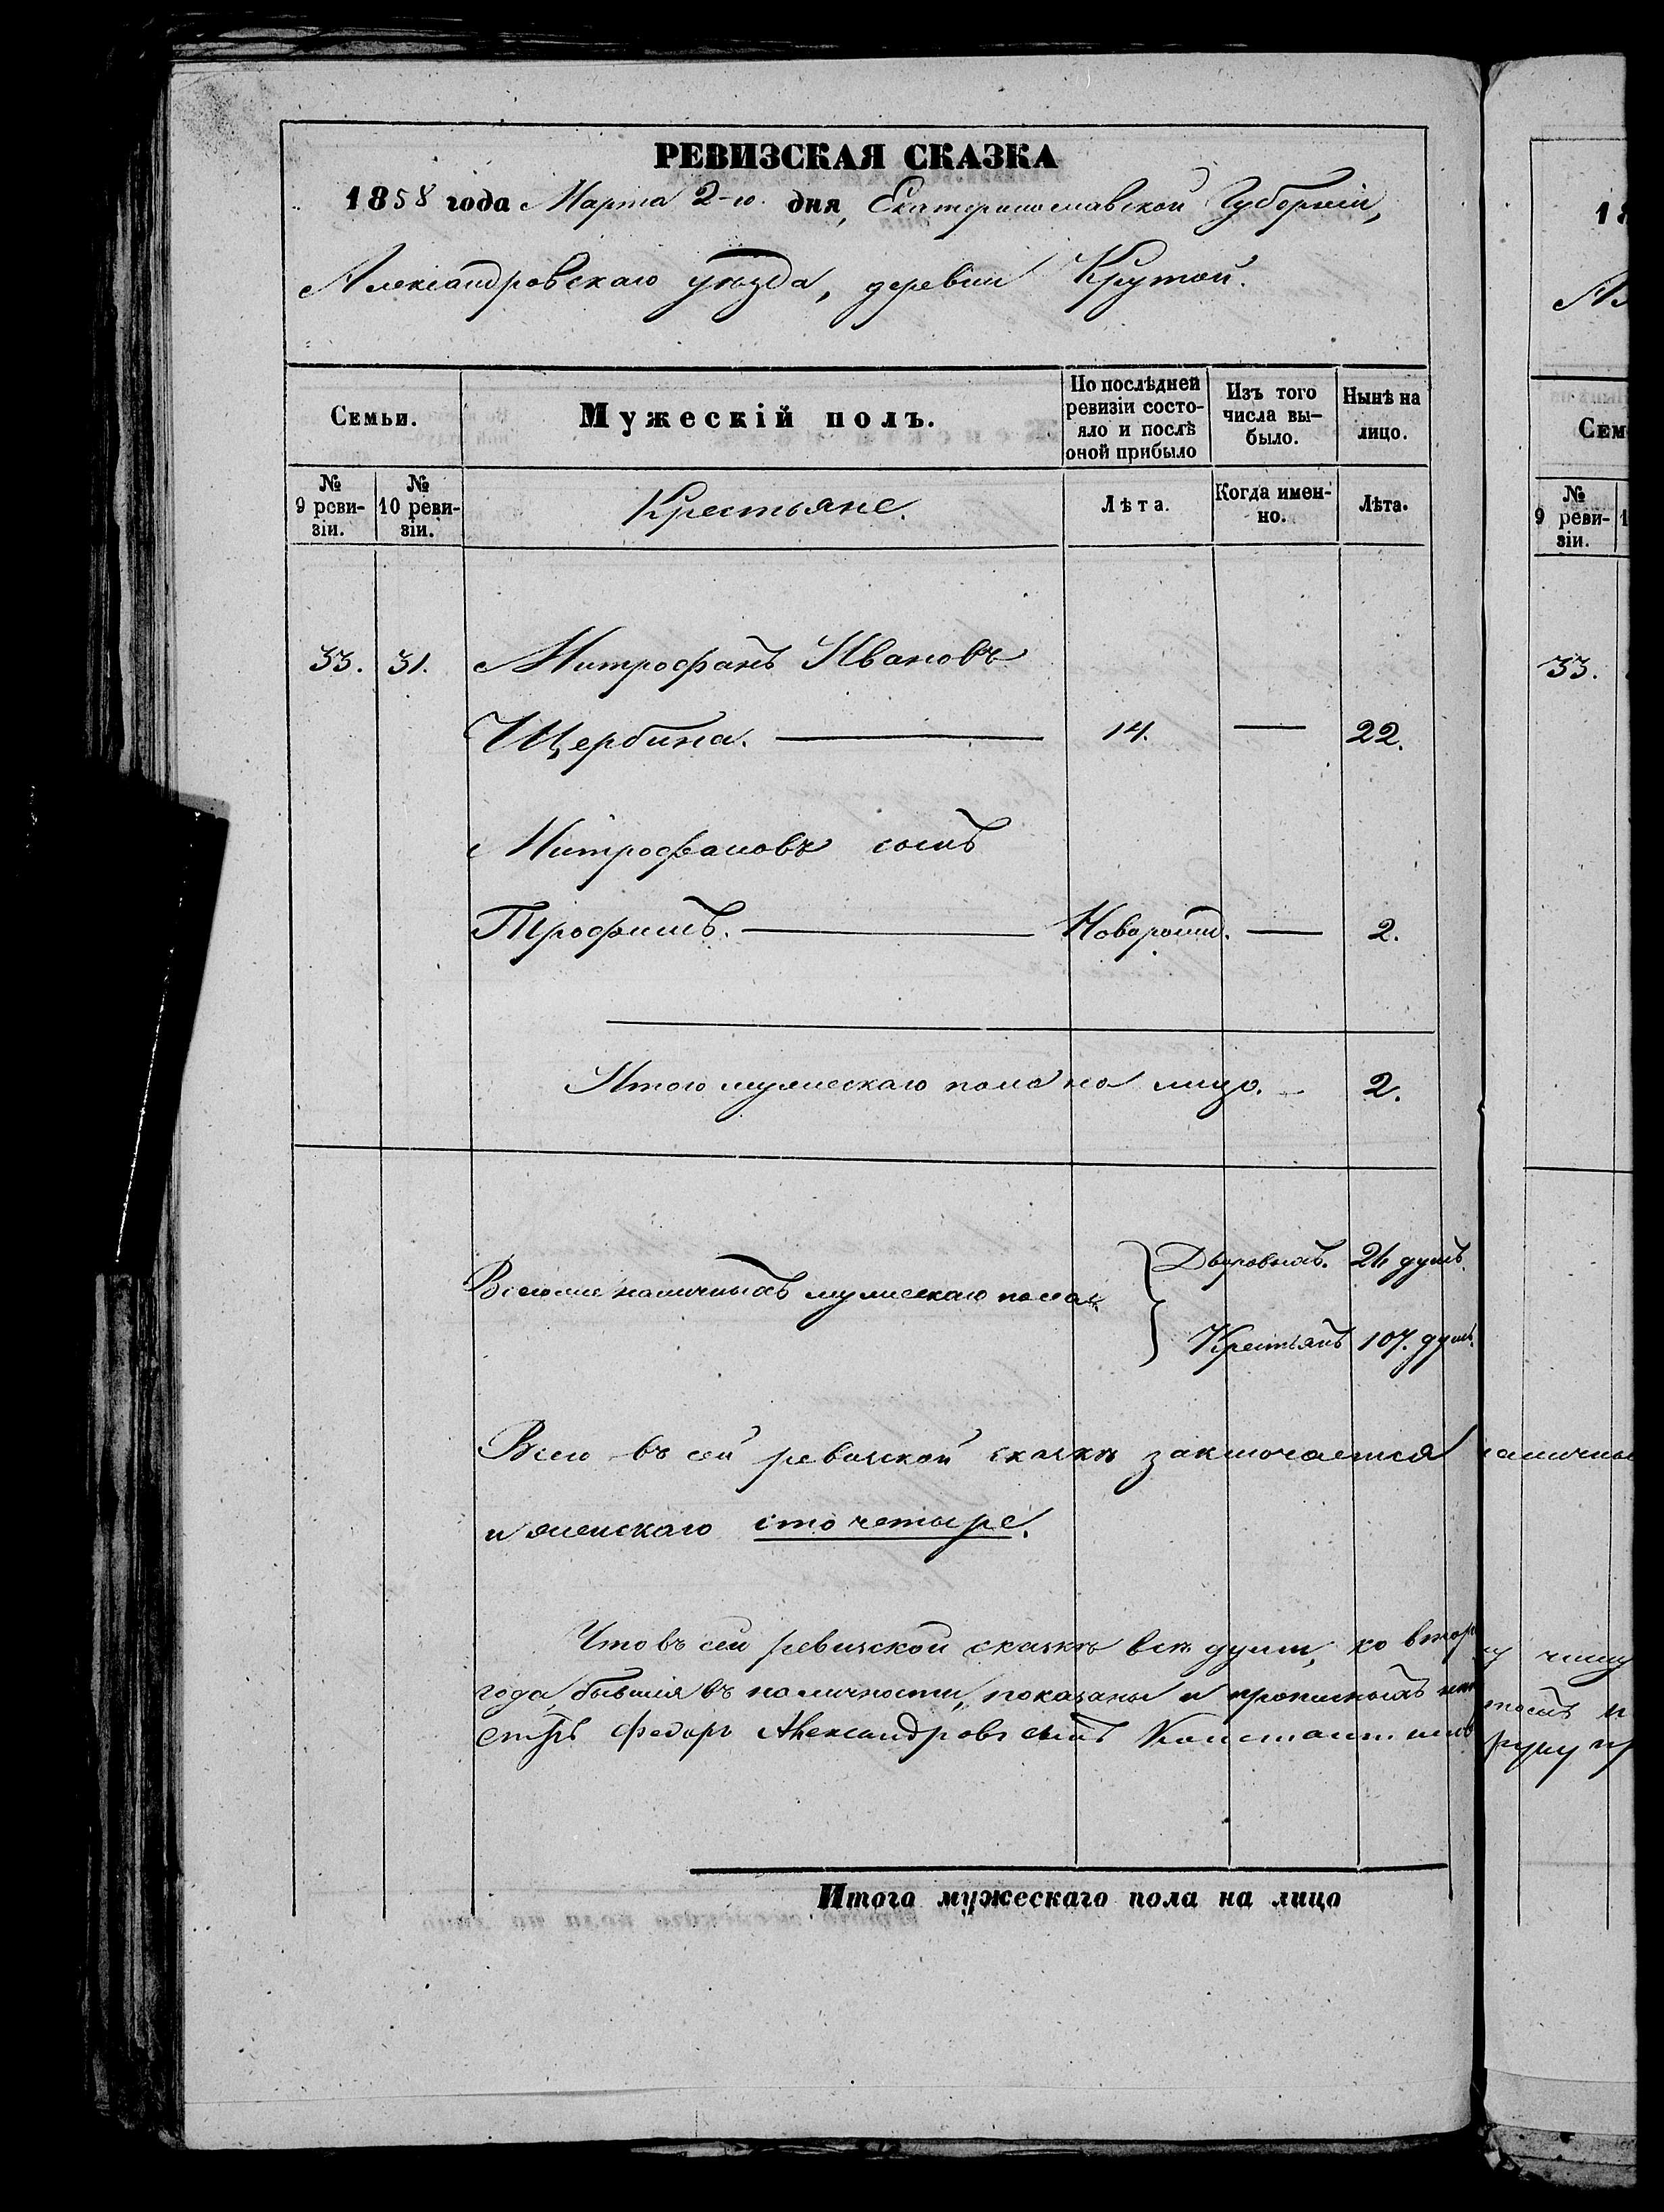 РЕВИЗСКАЯ СКАЗКА
1858 года Марта 2-го дня, Екатеринославской Губерніи,
Александровскаго уѣзда, деревни Крутой.
Семьи.
Мужескій полъ.
По послѣдней ревизіи состо-
яло и послѣ оной прибыло
Изъ того числа вы-
было.
Нынѣ на лицо.
№ 9 реви-
зіи.
№ 10 реви-
зіи.
Крестьяне.
Лѣта.
Когда имен-
но.
Лѣта.
33. 31. Митрофанъ Ивановъ
Щербина. — 14. — 22.
Митрофановъ сынъ
Трофимъ. — Новорожд. — 2.
Итого мужескаго пола на лицо. — 2.
Дворовыхъ. 26 душъ.
Всего же наличныхъ мужескаго пола
Крестьянъ 107. душъ.
Всего въ сей ревизской сказкѣ заключается
и женскаго сто четыре.
Что въ сей ревизской сказкѣ всѣ души, ко втор
года бывшія въ наличности, показаны и прописныхъ нѣтъ
Федоръ Александровъ сынъ Константиновъ
Итого мужескаго пола на лицо
18
Сем
№
9 реви-
зіи.
33.
числу
руку